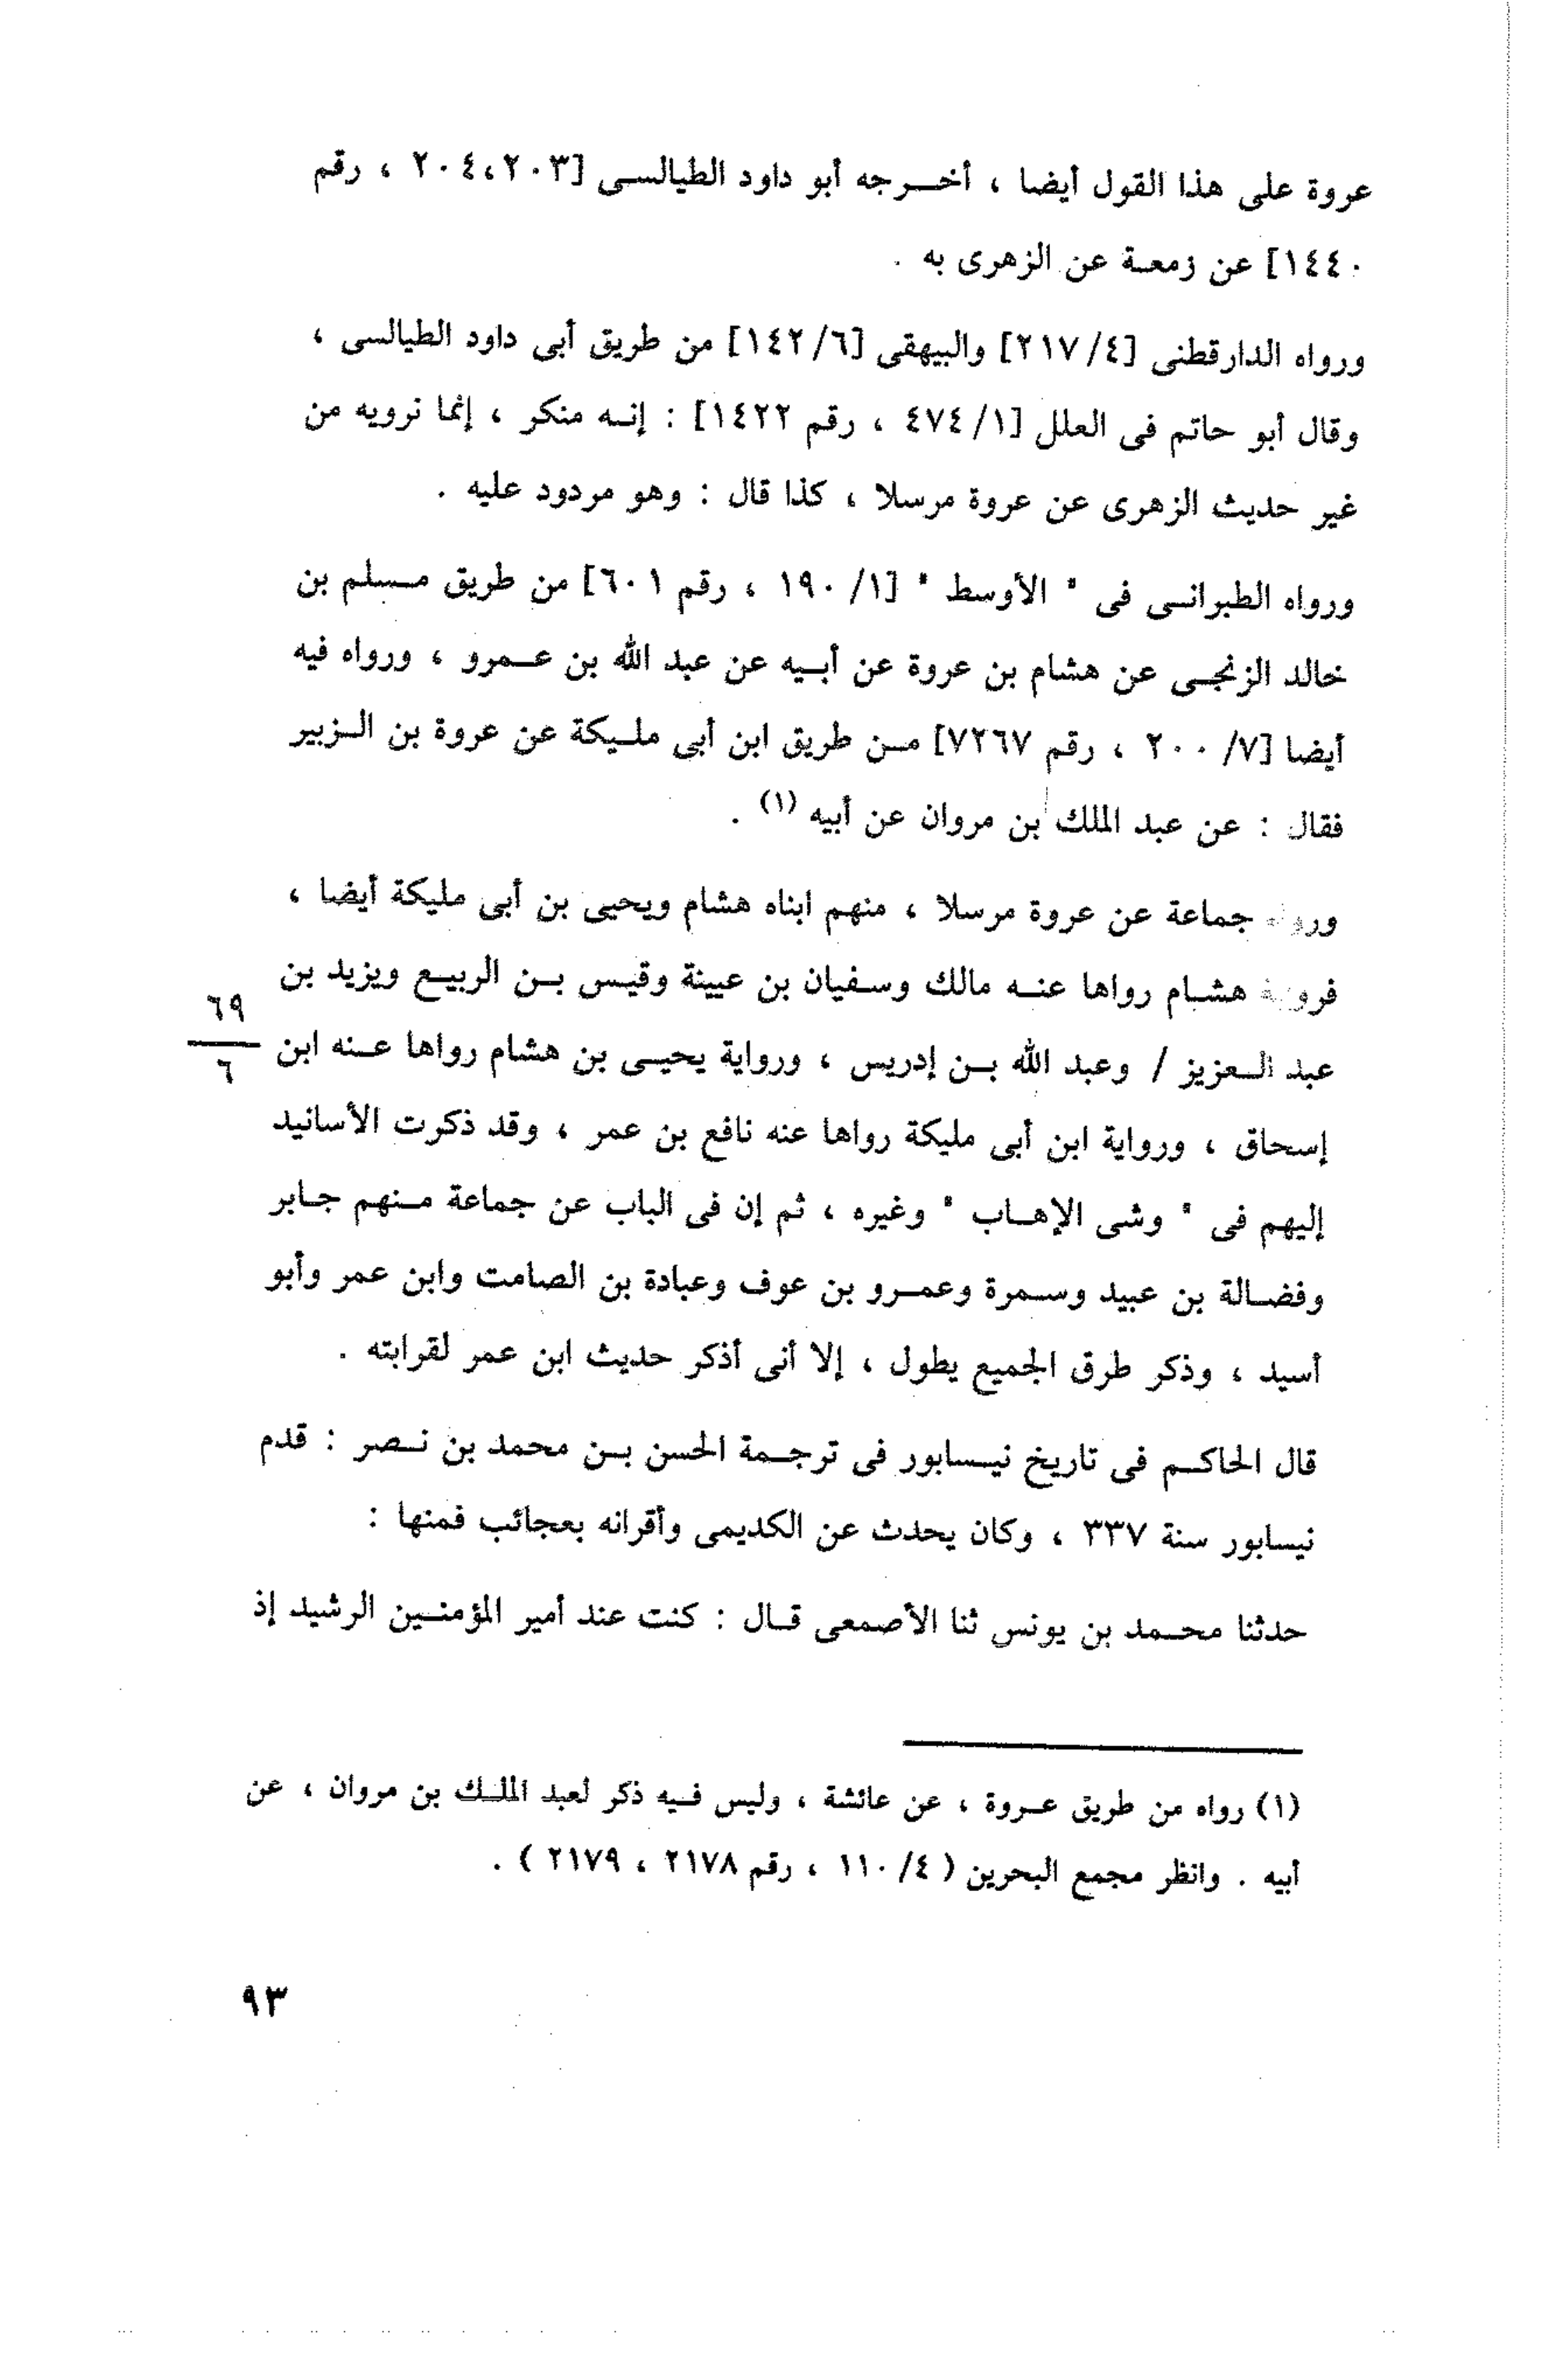 عروة على هذا القول أيضا ، أخرجه أبو داود الطيالسى [٢٠٤،٢٠٣ ، رقم
١٤٤٠] عن زمعة عن الزهرى به .
ورواه الدارقطنى [٢١٧/٤] والبيهقى [١٤٢/٦] من طريق أبى داود الطيالسى ،
وقال أبو حاتم فى العلل [٤٧٤/١ ، رقم ١٤٢٢] : إنه منكر ، إنما نرويه من
غير حديث الزهرى عن عروة مرسلا ، كذا قال : وهو مردود عليه .
ورواه الطبرانى فى " الأوسط " [١٩٠/١ ، رقم ٦٠١] من طريق مسلم بن
خالد الزنجى عن هشام بن عروة عن أبيه عن عبد الله بن عمرو ، ورواه فيه
أيضا [٢٠٠/٧ ، رقم ٧٢٦٧] من طريق ابن أبى مليكة عن عروة بن الزبير
فقال : عن عبد الملك بن مروان عن أبيه (١) .
ورواه جماعة عن عروة مرسلا ، منهم ابناه هشام ويحيى بن أبى مليكة أيضا ،
فرواية هشام رواها عنه مالك وسفيان بن عيينة وقيس بن الربيع ويزيد بن
٦٩
٦
عبد العزيز / وعبد الله بن إدريس ، ورواية يحيى بن هشام رواها عنه ابن
إسحاق ، ورواية ابن أبى مليكة رواها عنه نافع بن عمر ، وقد ذكرت الأسانيد
إليهم فى " وشى الإهاب " وغيره ، ثم إن فى الباب عن جماعة منهم جابر
وفضالة بن عبيد وسمرة وعمرو بن عوف وعبادة بن الصامت وابن عمر وأبو
أسيد ، وذكر طرق الجميع يطول ، إلا أنى أذكر حديث ابن عمر لقرابته .
قال الحاكم فى تاريخ نيسابور فى ترجمة الحسن بن محمد بن نصر : قدم
نيسابور سنة ٣٣٧ ، وكان يحدث عن الكديمى وأقرانه بعجائب فمنها :
حدثنا محمد بن يونس ثنا الأصمعى قال : كنت عند أمير المؤمنين الرشيد إذ
(١) رواه من طريق عروة ، عن عائشة ، وليس فيه ذكر لعبد الملك بن مروان ، عن
أبيه . وانظر مجمع البحرين ( ١١٠/٤ ، رقم ٢١٧٨ ، ٢١٧٩ ) .
٩٣